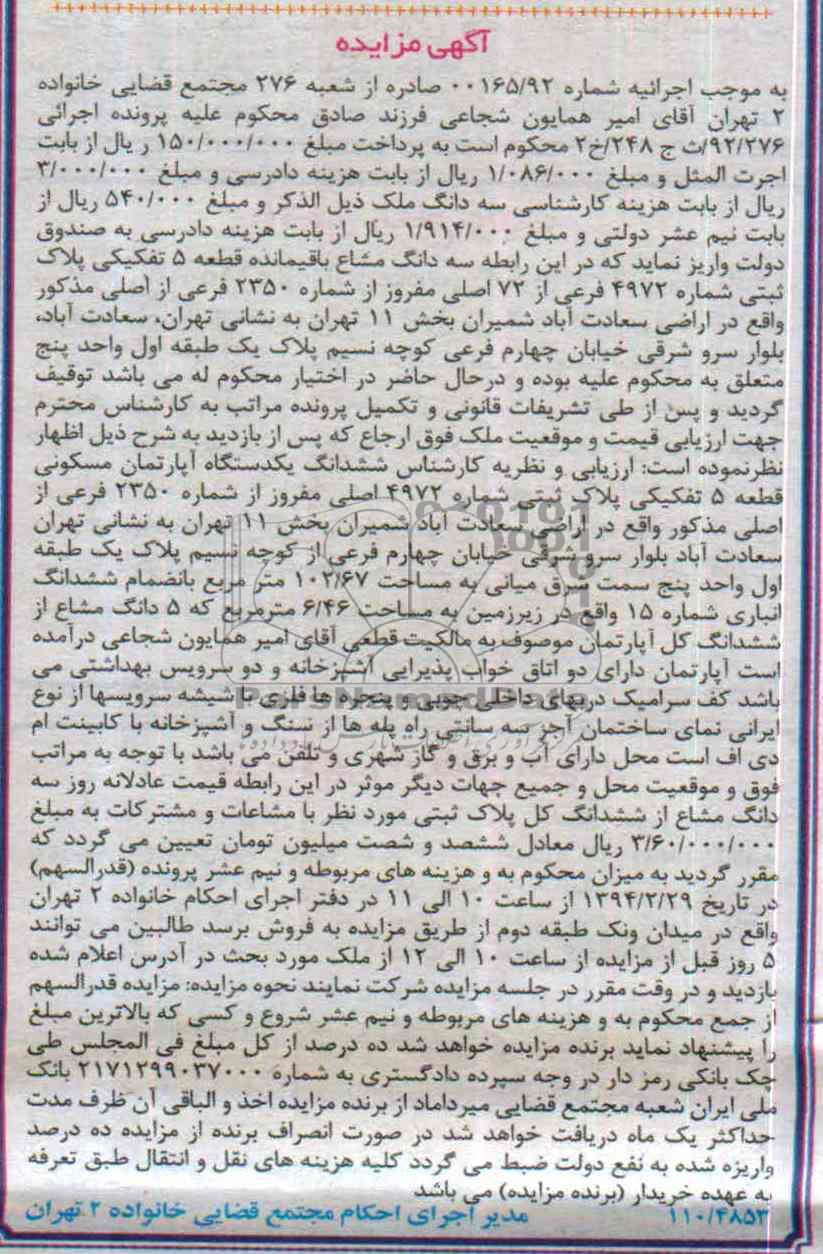 آگهی مزایده
به موجب اجرائیه شماره ۰۰۱۶۵/۹۲ صادره از شعبه ۲۷۶ مجتمع قضایی خانواده
۲ تهران آقای امیر همایون شجاعی فرزند صادق محکوم علیه پرونده اجرائی
۹۲/۲۷۶/ث ج ۲۴۸/خ۲ محکوم است به پرداخت مبلغ ۱۵۰/۰۰۰/۰۰۰ ر یال از بابت
اجرت المثل و مبلغ ۱/۰۸۶/۰۰۰ ریال از بابت هزینه دادرسی و مبلغ ۳/۰۰۰/۰۰۰
ریال از بابت هزینه کارشناسی سه دانگ ملک ذیل الذکر و مبلغ ۵۴۰/۰۰۰ ریال از
بابت نیم عشر دولتی و مبلغ ۱/۹۱۴/۰۰۰ ریال از بابت هزینه دادرسی به صندوق
دولت واریز نماید که در این رابطه سه دانگ مشاع باقیمانده قطعه ۵ تفکیکی پلاک
ثبتی شماره ۴۹۷۲ فرعی از ۷۲ اصلی مفروز از شماره ۲۳۵۰ فرعی از اصلی مذکور
واقع در اراضی سعادت آباد شمیران بخش ۱۱ تهران به نشانی تهران، سعادت آباد،
بلوار سرو شرقی خیابان چهارم فرعی کوچه نسیم پلاک یک طبقه اول واحد پنج
متعلق به محکوم علیه بوده و درحال حاضر در اختیار محکوم له می باشد توقیف
گردید و پس از طی تشریفات قانونی و تکمیل پرونده مراتب به کارشناس محترم
جهت ارزیابی قیمت و موقعیت ملک فوق ارجاع که پس از بازدید به شرح ذیل اظهار
نظرنموده است: ارزیابی و نظریه کارشناس ششدانگ یکدستگاه آپارتمان مسکونی
قطعه ۵ تفکیکی پلاک ثبتی شماره ۴۹۷۲ اصلی مفروز از شماره ۲۳۵۰ فرعی از
اصلی مذکور واقع در اراضی سعادت آباد شمیران بخش ۱۱ تهران به نشانی تهران
سعادت آباد بلوار سرو شرقی خیابان چهارم فرعی از کوچه نسیم پلاک یک طبقه
اول واحد پنج سمت شرق میانی به مساحت ۱۰۲/۶۷ متر مربع بانضمام ششدانگ
انباری شماره ۱۵ واقع در زیرزمین به مساحت ۶/۴۶ مترمربع که ۵ دانگ مشاع از
ششدانگ کل آپارتمان موصوف به مالکیت قطعی آقای امیر همایون شجاعی درآمده
است آپارتمان دارای دو اتاق خواب پذیرایی آشپزخانه و دو سرویس بهداشتی می
باشد کف سرامیک دربهای داخلی چوبی و پنجره ها فلزی با شیشه سرویسها از نوع
ایرانی نمای ساختمان آجر سه سانتی راه پله ها از سنگ و آشپزخانه با کابینت ام
دی اف است محل دارای آب و برق و گاز شهری و تلفن می باشد با توجه به مراتب
فوق و موقعیت محل و جمیع جهات دیگر موثر در این رابطه قیمت عادلانه روز سه
دانگ مشاع از ششدانگ کل پلاک ثبتی مورد نظر با مشاعات و مشترکات به مبلغ
۳/۶۰/۰۰۰/۰۰۰ ریال معادل ششصد و شصت میلیون تومان تعیین می گردد که
مقرر گردید به میزان محکوم به و هزینه های مربوطه و نیم عشر پرونده (قدرالسهم)
در تاریخ ۱۳۹۴/۲/۲۹ از ساعت ۱۰ الی ۱۱ در دفتر اجرای احکام خانواده ۲ تهران
واقع در میدان ونک طبقه دوم از طریق مزایده به فروش برسد طالبین می توانند
۵ روز قبل از مزایده از ساعت ۱۰ الی ۱۲ از ملک مورد بحث در آدرس اعلام شده
بازدید و در وقت مقرر در جلسه مزایده شرکت نمایند نحوه مزایده: مزایده قدرالسهم
از جمع محکوم به و هزینه های مربوطه و نیم عشر شروع و کسی که بالاترین مبلغ
را پیشنهاد نماید برنده مزایده خواهد شد ده درصد از کل مبلغ فی المجلس طی
چک بانکی رمز دار در وجه سپرده دادگستری به شماره ۲۱۷۱۲۹۹۰۳۷۰۰۰ بانک
ملی ایران شعبه مجتمع قضایی میرداماد از برنده مزایده اخذ و الباقی آن ظرف مدت
حداکثر یک ماه دریافت خواهد شد در صورت انصراف برنده از مزایده ده درصد
واریزه شده به نفع دولت ضبط می گردد کلیه هزینه های نقل و انتقال طبق تعرفه
به عهده خریدار (برنده مزایده) می باشد
۱۱۰/۴۸۵۳ مدیر اجرای احکام مجتمع قضایی خانواده ۲ تهران
ParsNamadData